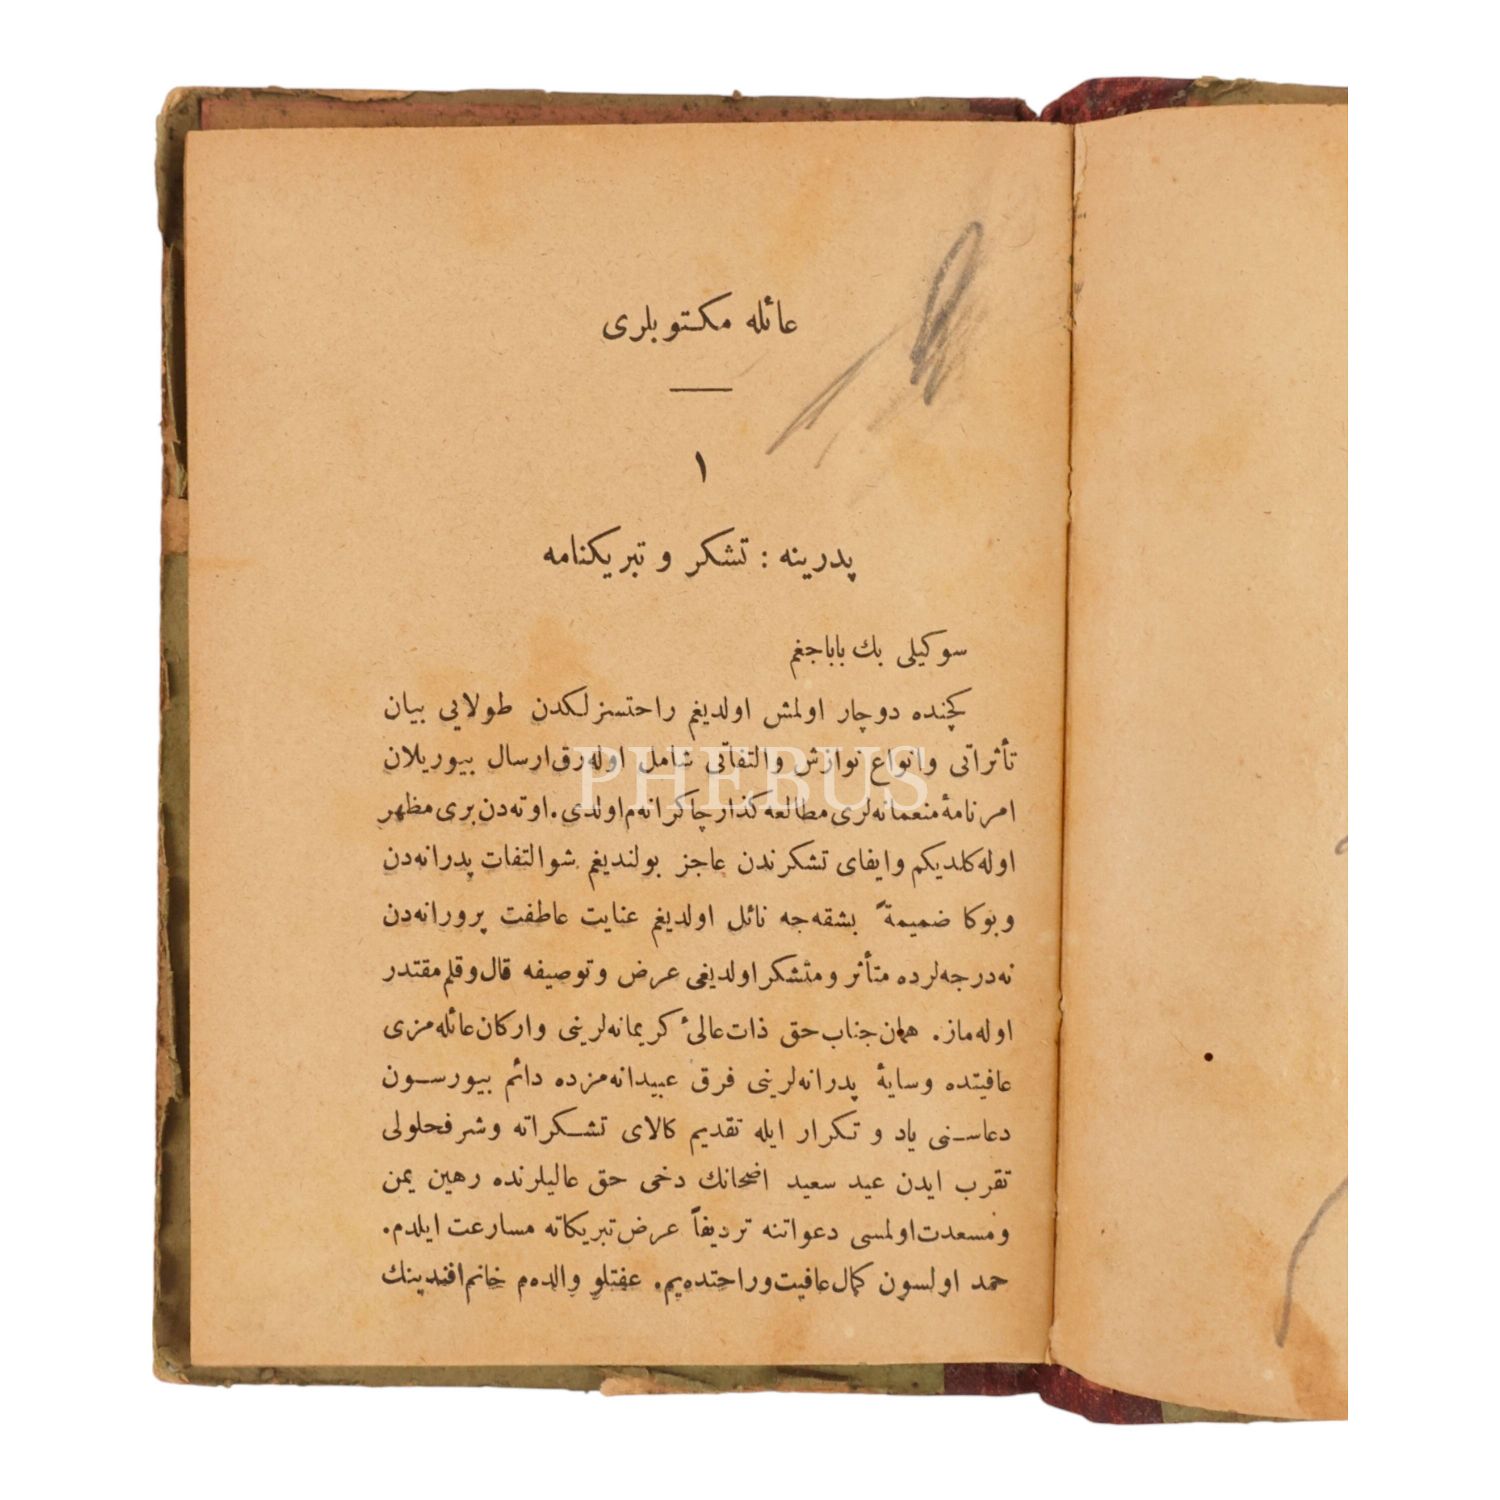 عائله مكتوبلرى
١
پدرينه : تشكر و تبريكنامه
سوكيلى بك باباجغم
كچنده دوچار اولمش اولديغم راحتسزلكدن طولايى بيان
تأثراتى وانواع نوازش والتفاتى شامل اوله‌رق ارسال بيوريلان
امرنامهٔ منعمانه‌لرى مطالعه‌گذار چاكرانه‌م اولدى. اوته‌دن برى مظهر
اوله‌كلديكم وايفاى تشكرندن عاجز بولنديغم شو التفات پدرانه‌دن
وبوكا ضميمةً بشقه‌جه نائل اولديغم عنايت عاطفت پرورانه‌دن
نه‌درجه‌لرده متأثر ومتشكر اولديغمى عرض وتوصيفه قال وقلم مقتدر
اوله‌ماز. همان جناب حق ذات عالئ كريمانه‌لرينى واركان عائله‌مزى
عافيتده وسايهٔ پدرانه‌لرينى فرق عبيدانه‌مزده دائم بيورسون
دعاسنى ياد و تكرار ايله تقديم كالاى تشكراته وشرفحلولى
تقرب ايدن عيد سعيد اضحانك دخى حق عاليلرنده رهين يمن
ومسعدت اولمسى دعواتنه ترديفاً عرض تبريكاته مسارعت ايلدم.
حمد اولسون كمال عافيت وراحتده‌يم. عفتلو والده‌م خانم افندينك
PHEBUS